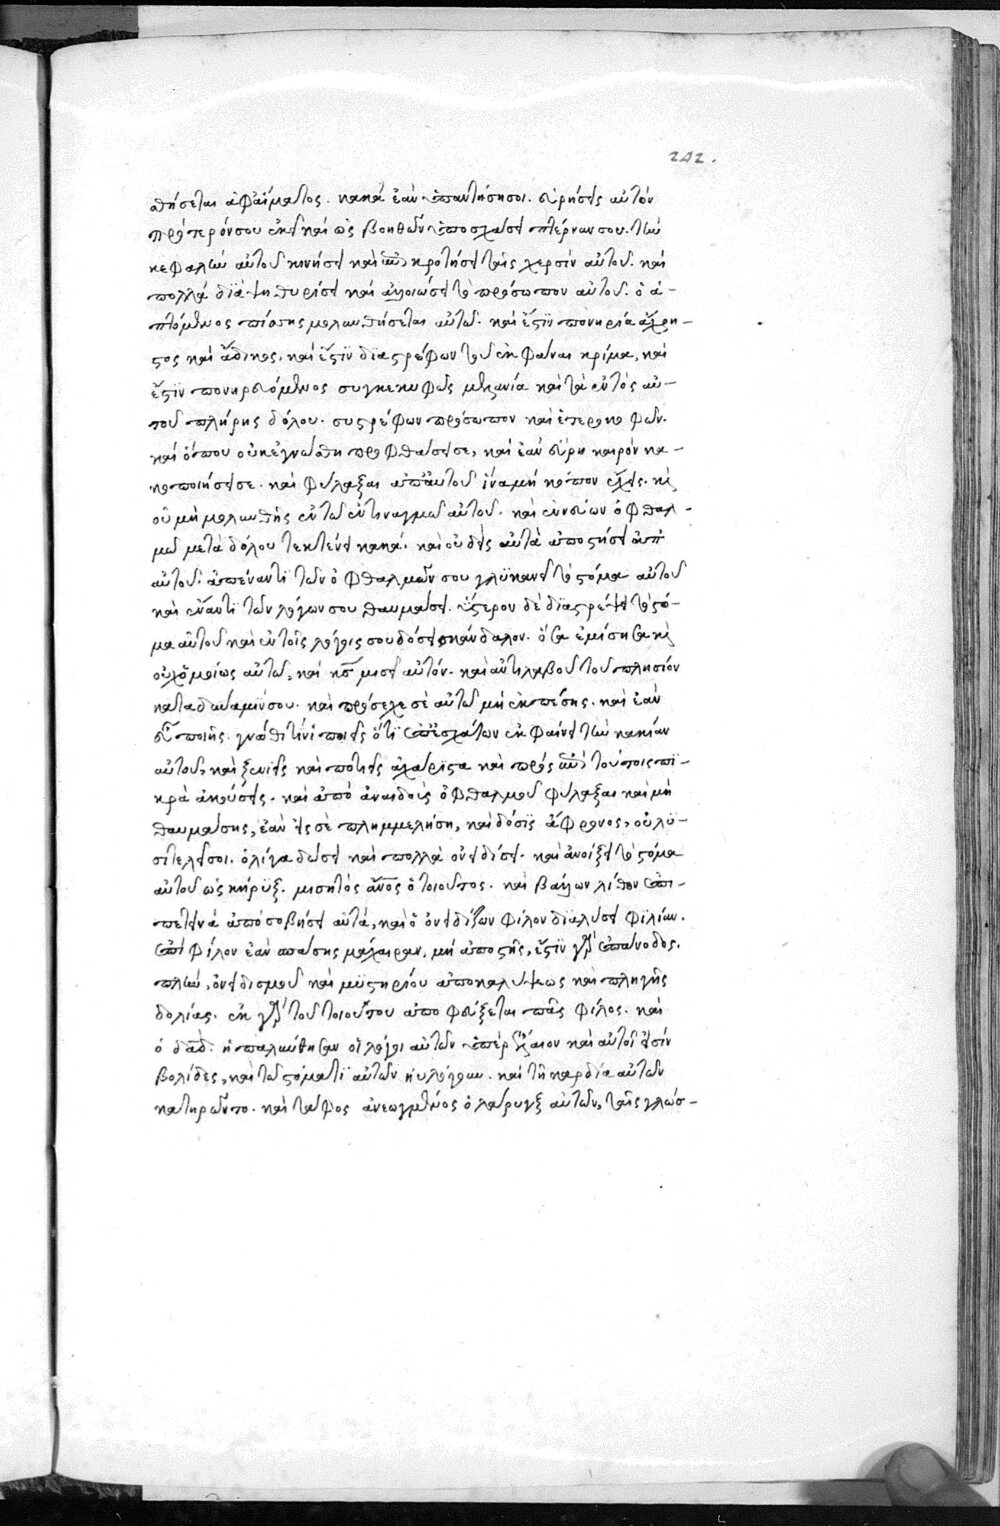 242.
θήσεται ἀφ' αἵματος. κακά ἐὰν ὑπαντήσησοι. εὑρήσεις αὐτόν
πρότερόνσου ἐκεῖ καί ὡς βοηθῶν ὑποσχάσει πτέρνανσου. τὴν
κεφαλὴν αὐτοῦ κινήσει καὶ ἐπικροτήσει ταῖς χερσίν αὐτοῦ. καί
πολλά διαψηθυρίσει καί ἀλοιώσει τὸ πρόσωπον αὐτοῦ. ὁ ἁ-
πτόμενος πίσσης μολυνθήσεται αὐτῶ. καί ἔστιν πονηρία ἄχρη-
στος καὶ ἄδικος. καί ἔστιν διαστρέφων τοῦ ἐκφᾶναι κρίμα, καί
ἔστιν πονηρευόμενος συγκεκυφὼς μελανία καὶ τὰ ἐντὸς αὐ-
τοῦ πλήρης δόλου. συστρέφων πρόσωπον καὶ ἑτεροκωφῶν.
καί ὅπου οὐκ ἐγνώσθη προφθάσει σε, καί ἐάν εὕρη καιρόν κα-
κοποιήσει σε. καί φύλαξαι ἀπ' αὐτοῦ ἵνα μή κόπον ἔχεις. κὶ
οὐ μὴ μολυνθῆς ἐν τῶ ἐντιναγμῶ αὐτοῦ. καὶ ἐννεύων ὀφθαλ-
μῶ μετὰ δόλου τεκτένει κακά. καὶ οὐδεὶς αὐτὰ ἀποστήσει ἀπ'
αὐτοῦ. ἀπέναντι τῶν ὀφθαλμῶν σου γλυκανεῖ τὸ στόμα αὐτοῦ
καὶ ἔναντι τῶν λόγων σου θαυμάσει. ὕστερον δὲ διαστρέψει τὸ στό-
μα αὐτοῦ καὶ ἐν τοῖς λόγοις σου δόσει σκάνδαλον. ὅσα ἐμίσησα κὶ
οὐχ ὁμοίως αὐτῶ, καί κς μισεῖ αὐτόν. καὶ ἀντιλαβοῦ τοῦ πλησίον
κατα δύναμίνσου. καὶ πρόσεχε σὲ αὐτῶ μή ἐκπέσης. καὶ ἐάν
εὖ ποιῆς. γνῶθι τίνι ποιεῖς ὅτι ἐπ' ἐσχάτων ἐκφαίνει τὴν κακίαν
αὐτοῦ, καὶ ξενιεῖς καὶ ποτιεῖς ἀχάριστα καὶ πρὸς ἐπὶ τούτοις πι-
κρὰ ἀκούσεις. καὶ ἀπὸ ἀναιδοῦς ὀφθαλμοῦ φύλαξαι καὶ μή
θαυμάσης, ἐὰν εἴς σὲ πλημμελήση, καὶ δόσις ἄφρονος, οὐ λυ-
σιτελεῖσοι. ὀλίγα δώσει καὶ πολλὰ ὀνειδίσει. καὶ ἀνοίξει τὸ στόμα
αὐτοῦ ὡς κήρυξ. μισητὸς ἄνος ὁ τοιοῦτος. καὶ βάλλων λίθον ἐπι-
πετεινά ἀποσοβήσει αὐτά, καὶ ὁ ὀνειδίζων φίλον διαλύσει φιλίαν.
ἐπὶ φίλον ἐάν σπάσης μάχαιραν, μή ἀποστῆς, ἔστιν γὰρ ἐπάνοδος.
πλὴν, ὀνειδισμοῦ καὶ μυστηρίου ἀποκαλύψεως καὶ πληγῆς
δολίας. ἐκ γὰρ τοῦ τοιούτου ἀποφεύξεται πᾶς φίλος. καί
ὁ δᾱδ. ἡπαλύνθησαν οἱ λόγοι αὐτῶν ὑπὲρ ἔλαιον καὶ αὐτοί εἰσίν
βολίδες, καὶ τῶ στόματι αὐτῶν ηὐλόγουν. καὶ τῆ καρδία αὐτῶν
κατηρῶντο. καὶ τάφος ἀνεωγμένος ὁ λάρυγξ αὐτῶν, ταῖς γλώσ-